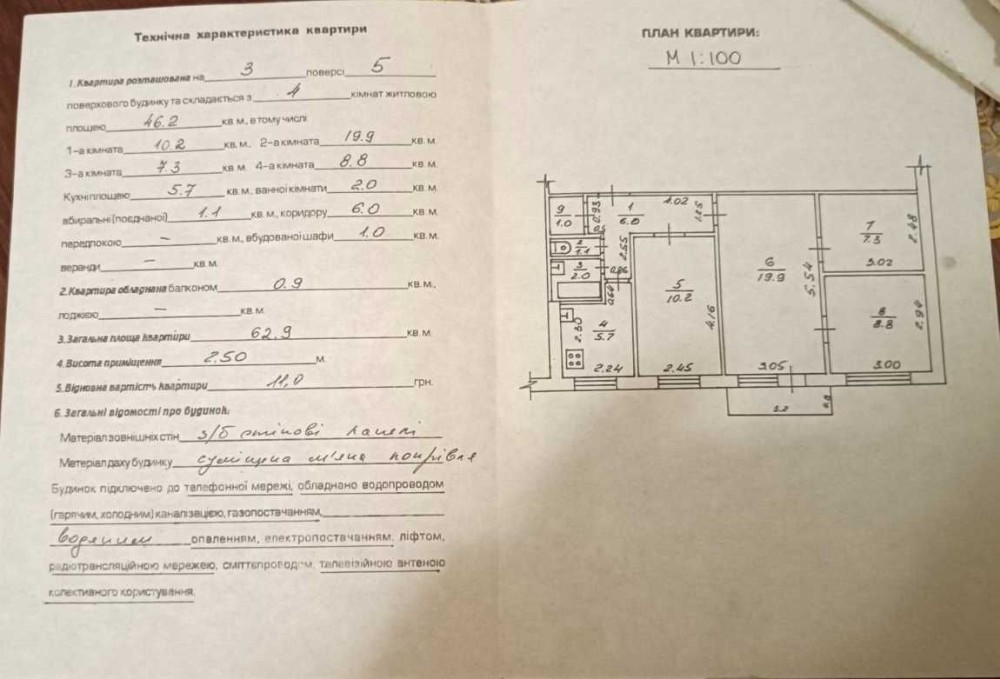 Технічна характеристика квартири
1. Квартира розташована на 3 поверсі 5
поверхового будинку та складається з 4 кімнат житловою
площею 46.2 кв. м., в тому числі
1-а кімната 10.2 кв. м., 2-а кімната 19.9 кв. м.
3-а кімната 7.3 кв. м. 4-а кімната 8.8 кв. м.
Кухні площею 5.7 кв. м., ванної кімнати 2.0 кв. м.
вбиральні (поєднаної) 1.1 кв. м., коридору 6.0 кв. м.
передпокою — кв. м., вбудованої шафи 1.0 кв. м.
веранди — кв. м.
2. Квартира обладнана балконом 0.9 кв. м.,
лоджією — кв. м.
3. Загальна площа квартири 62.9 кв. м.
4. Висота приміщення 2.50 м.
5. Відновна вартість квартири 11,0 грн.
6. Загальні відомості про будинок:
Матеріал зовнішніх стін з/б стінові панелі
Матеріал даху будинку суміщена м'яка покрівля
Будинок підключено до телефонної мережі, обладнано водопроводом
(гарячим, холодним) каналізацією, газопостачанням,
водяним опаленням, електропостачанням, ліфтом,
радіотрансляційною мережею, сміттєпроводом, телевізійною антеною
колективного користування.
ПЛАН КВАРТИРИ:
М 1:100
9
1.0
0.93
1
6.0
1.02
1.25
2
1.1
2.55
3
2.0
0.86
0.60
4
5.7
2.50
2.24
5
10.2
4.16
2.45
6
19.9
5.54
3.05
7
7.3
2.48
3.02
8
8.8
2.94
3.00